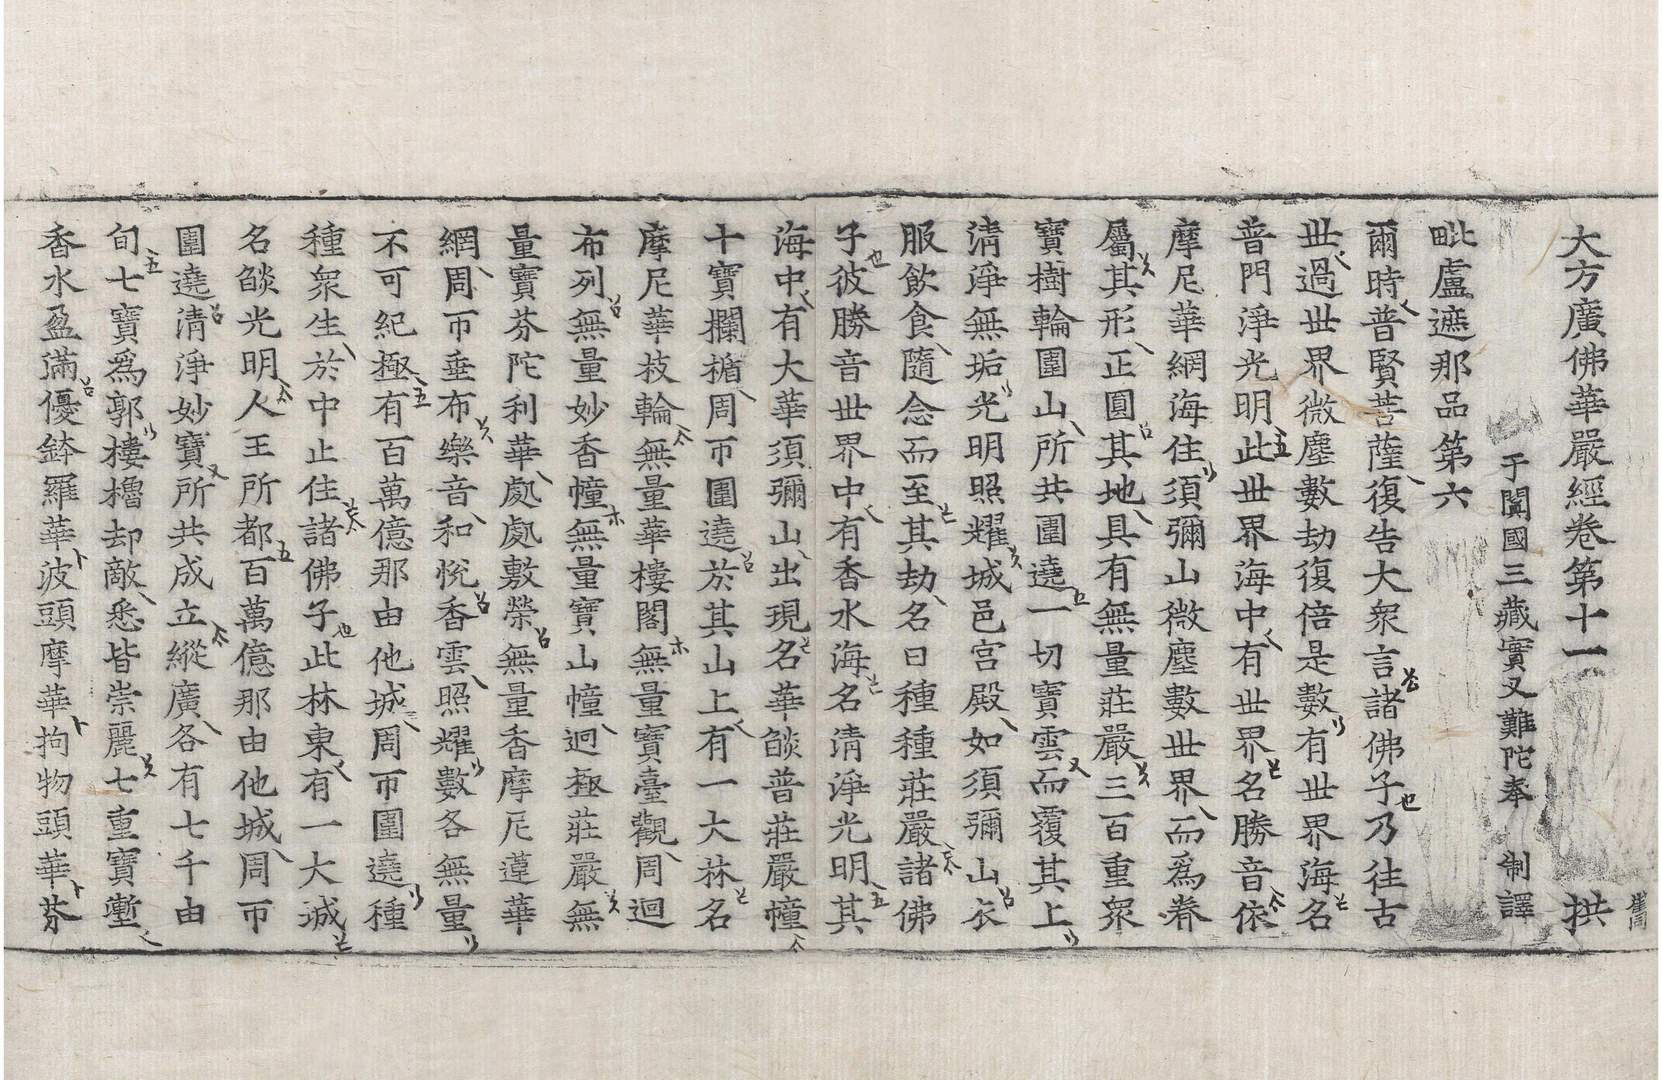 大方廣佛華嚴經卷第十一 拱
于闐國三藏實叉難陀奉 制譯
毗盧遮那品第六
爾時普賢菩薩復告大衆言諸佛子乃往古
世過世界微塵數劫復倍是數有世界海名
普門淨光明此世界海中有世界名勝音依
摩尼華網海住須彌山微塵數世界而爲眷
屬其形正圓其地具有無量莊嚴三百重衆
寶樹輪圍山所共圍遶一切寶雲而覆其上
淸淨無垢光明照耀城邑宮殿如須彌山衣
服飮食隨念而至其劫名曰種種莊嚴諸佛
子彼勝音世界中有香水海名淸淨光明其
海中有大華須彌山出現名華焰普莊嚴幢
十寶欄楯周帀圍遶於其山上有一大林名
摩尼華枝輪無量華樓閣無量寶臺觀周迴
布列無量妙香幢無量寶山幢迥極莊嚴無
量寶芬陀利華處處敷榮無量香摩尼蓮華
網周帀垂布樂音和悅香雲照耀數各無量
不可紀極有百萬億那由他城周帀圍遶種
種衆生於中止住諸佛子此林東有一大城
名焰光明人王所都百萬億那由他城周帀
圍遶淸淨妙寶所共成立縱廣各有七千由
旬七寶爲郭樓櫓却敵悉皆崇麗七重寶塹
香水盈滿優鉢羅華波頭摩華拘物頭華芬